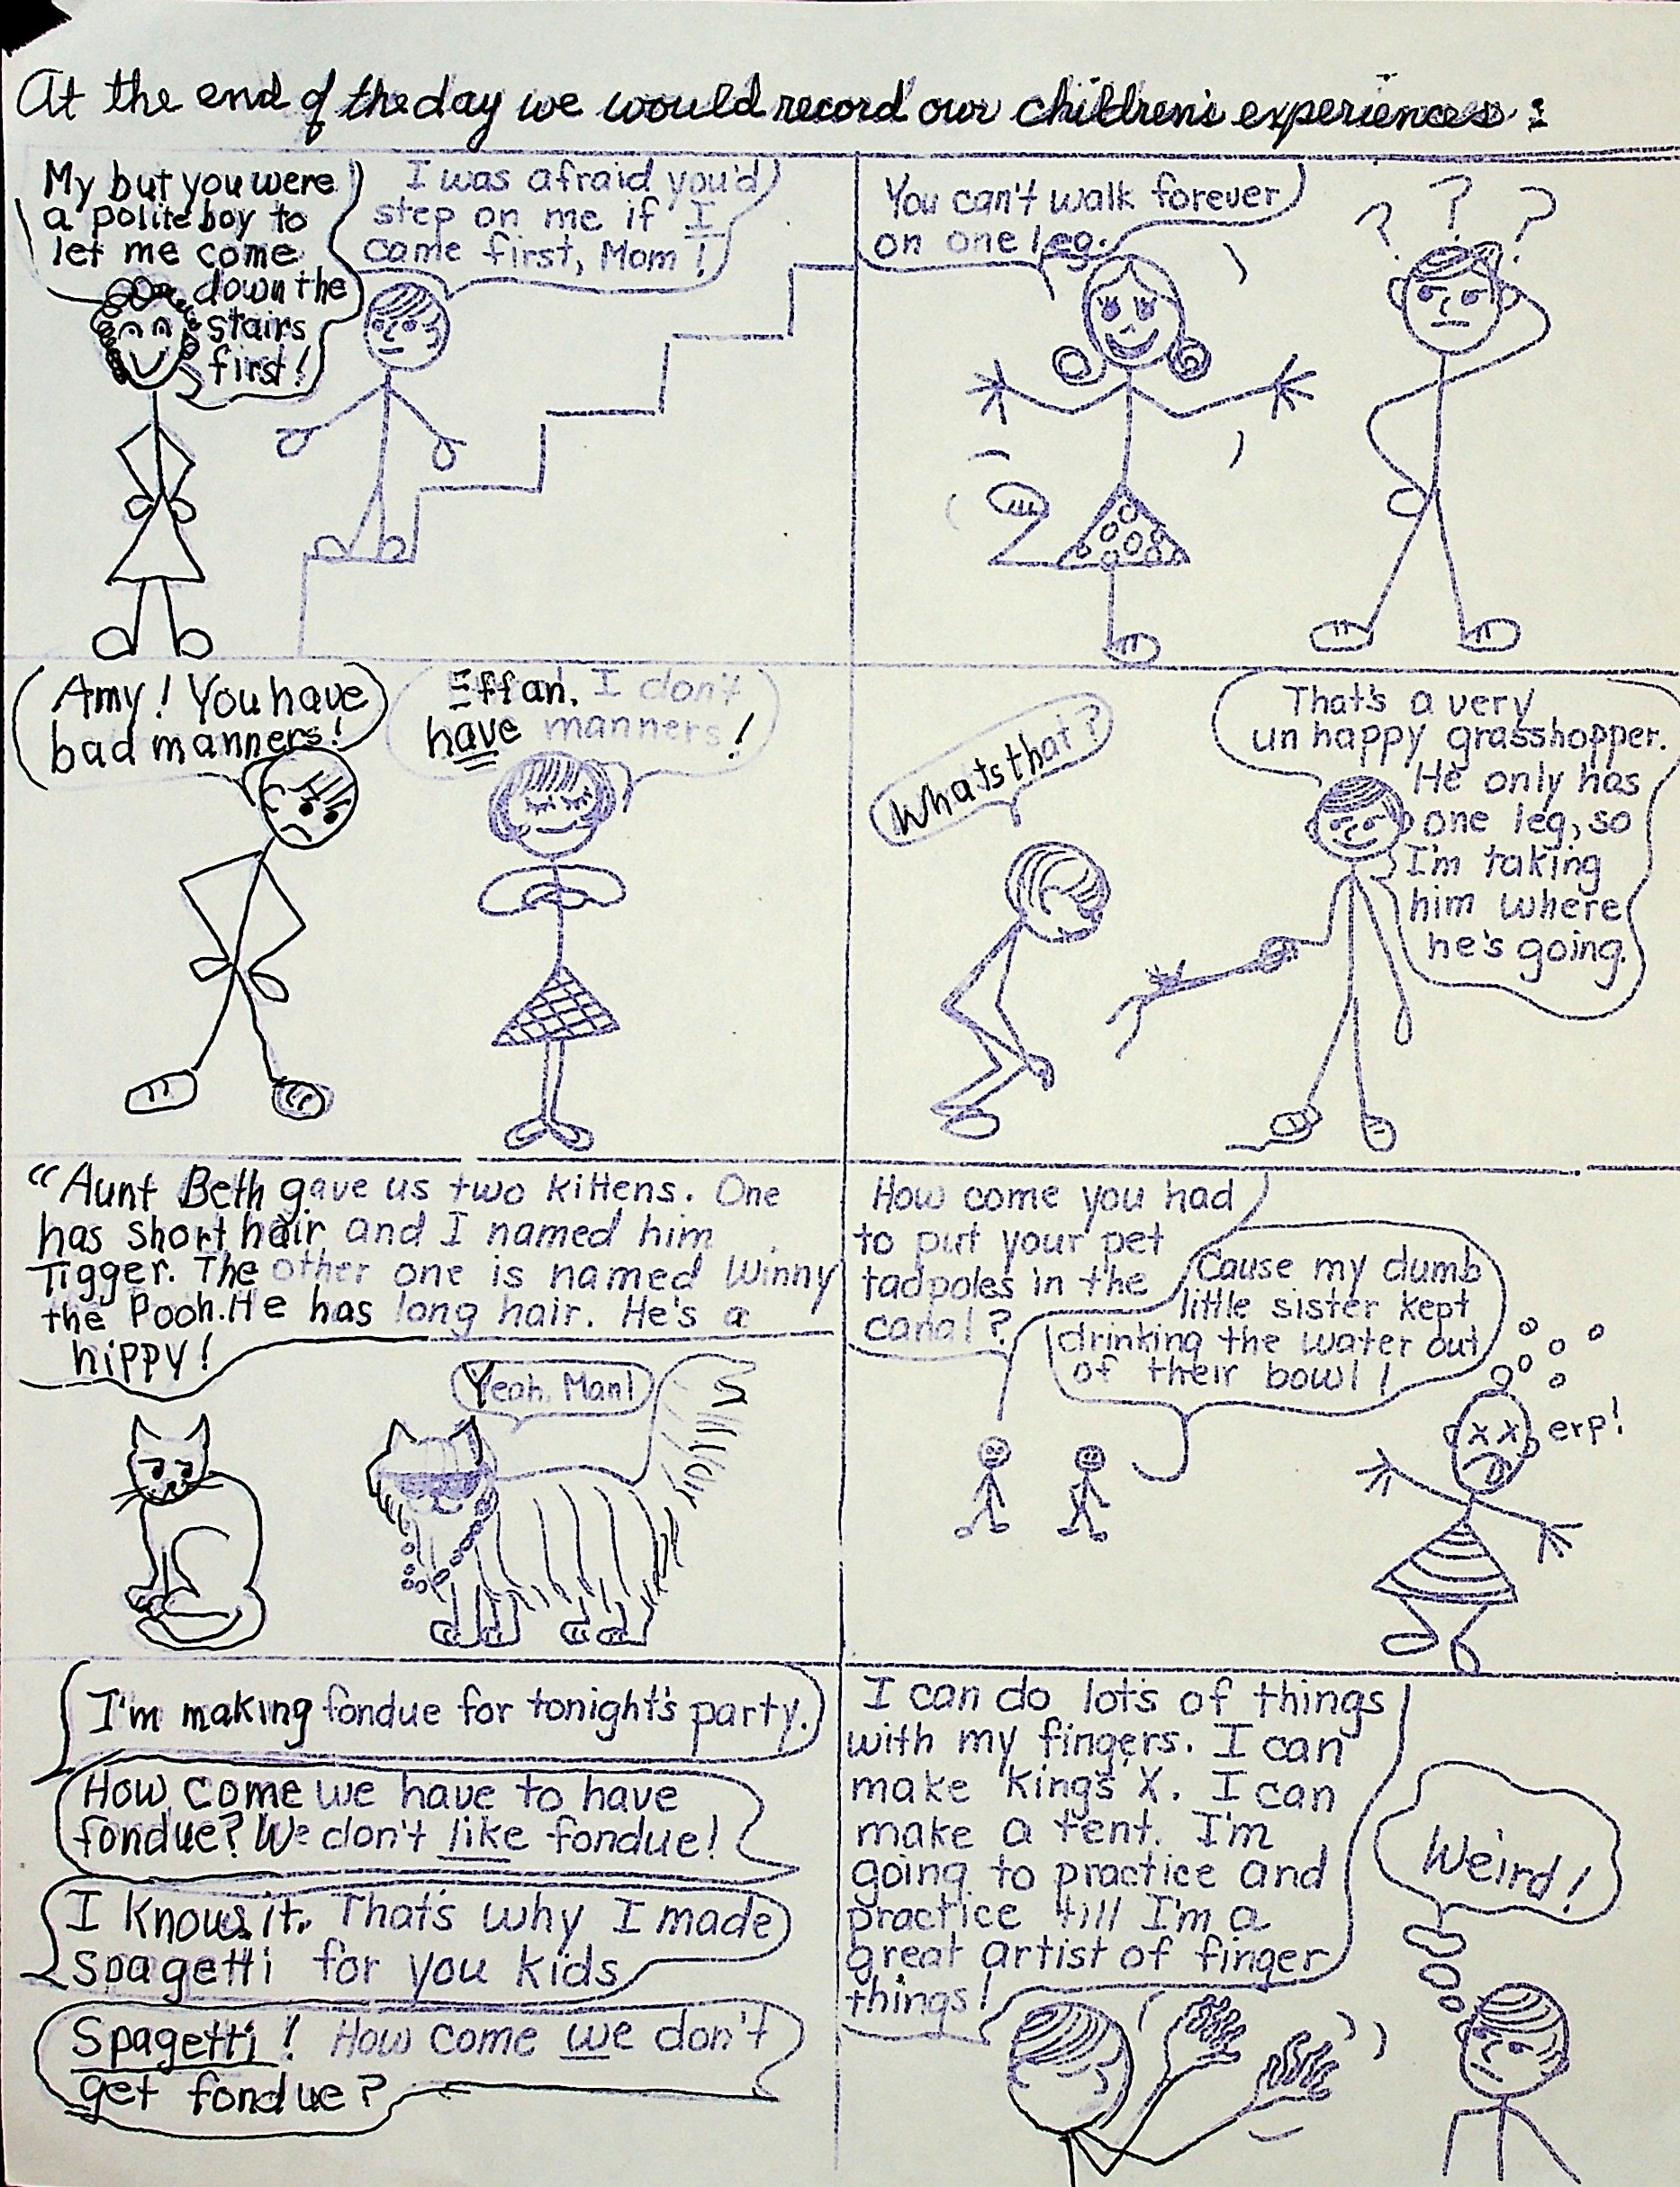 At the end of the day we would record our children's experiences:
My but you were
a polite boy to
let me come
down the
stairs
first!
I was afraid you'd
step on me if I
came first, Mom!
You can't walk forever
on one leg.
? ? ?
Amy! You have
bad manners!
Effan, I don't
have manners!
Whats that?
That's a very
un happy grasshopper.
He only has
one leg, so
I'm taking
him where
he's going.
"Aunt Beth gave us two kittens. One
has short hair and I named him
Tigger. The other one is named Winny
the Pooh. He has long hair. He's a
hippy!
Yeah, Man!
How come you had
to put your pet
tadpoles in the
canal?
'Cause my dumb
little sister kept
drinking the water out
of their bowl!
erp!
I'm making fondue for tonight's party.
How come we have to have
fondue? We don't like fondue!
I know it. That's why I made
spagetti for you kids
Spagetti! How come we don't
get fondue?
I can do lots of things
with my fingers. I can
make King's X. I can
make a tent. I'm
going to practice and
practice till I'm a
great artist of finger
things!
Weird!